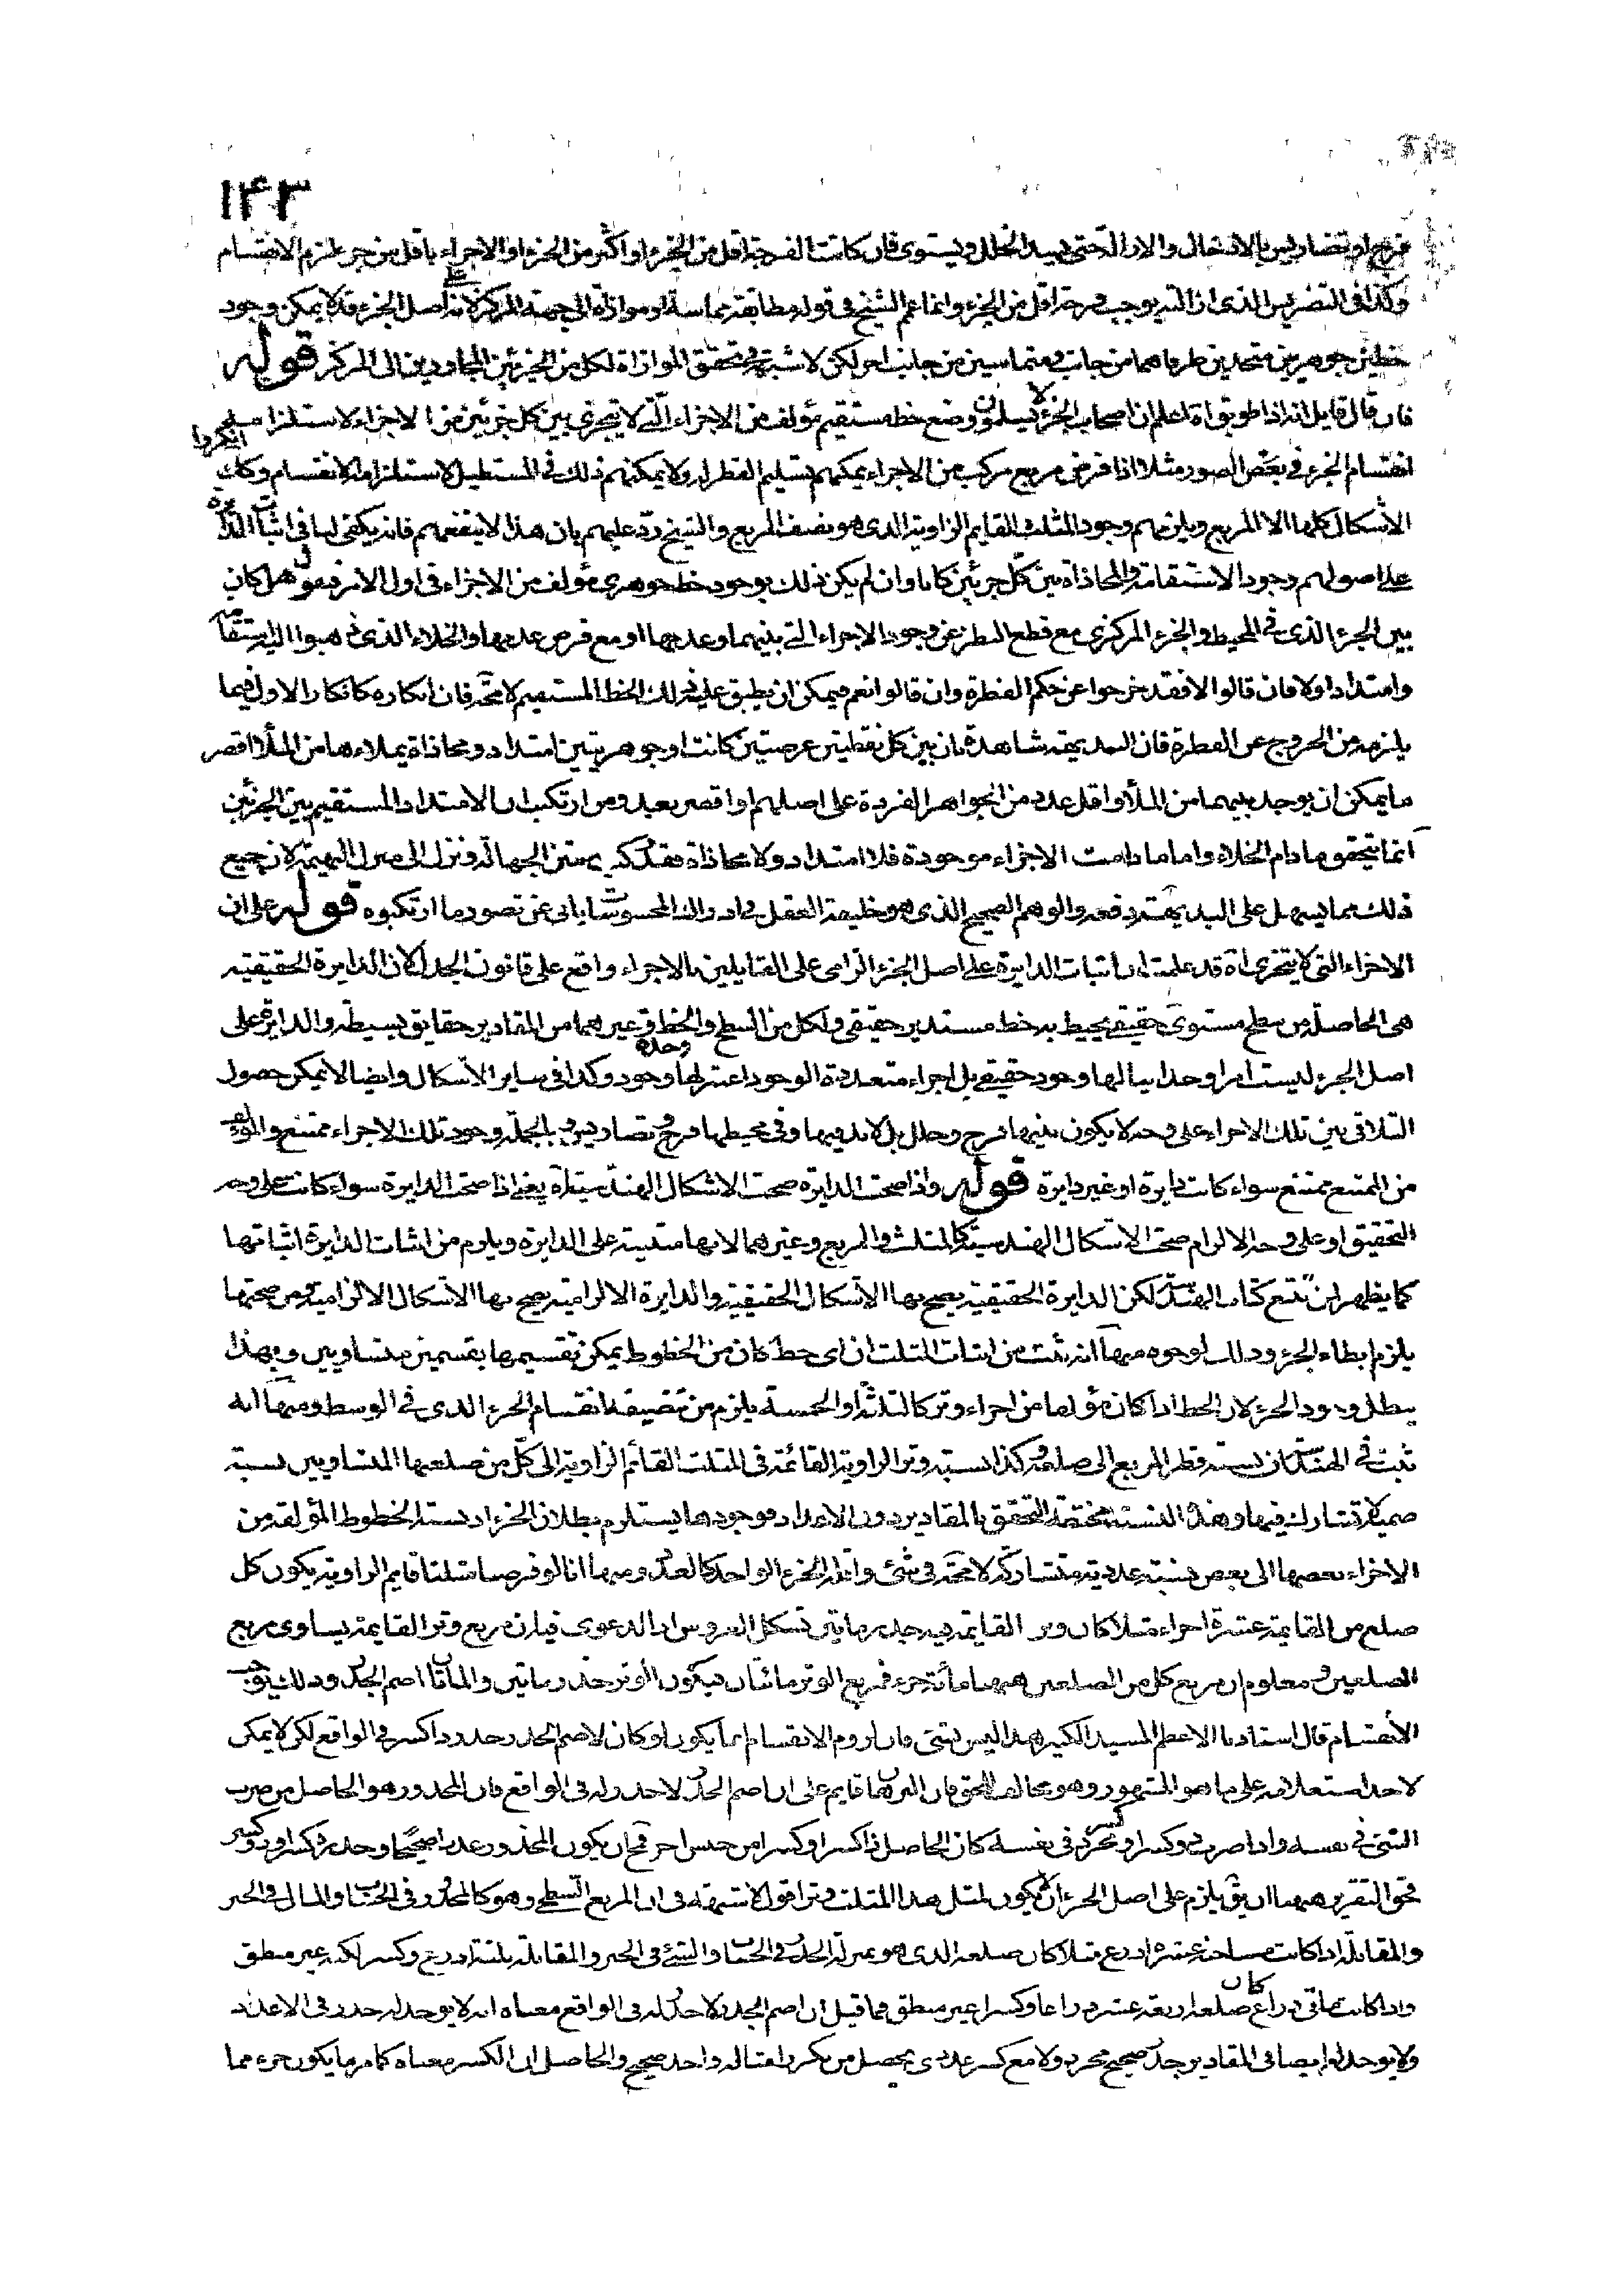 ١٤٣
فرج او تضاريس بالادخال والازالة حتى يسد الخلل ويستوى فان كانت الفرجة اقل من الجزء او اكثر من الجزء او الاجزاء باقل من جزء لزم الانقسام
وكذا فى التضريس الذى ازالته يوجب فرجة اقل من الجزء وانما عمم الشيخ فى قوله مطابقة مماسة او موازاة الى جهة المركز لانه على اصل الجزء قد لا يمكن وجود
خطين جوهريين متحدين طرفاهما من جانب ومتماسين من جانب اخر لكن لا شبهة فى تحقق الموازاة لكل من الجزئين المجاورين الى المركز قوله
فان قال قايل انه اذا طوبق اه اعلم ان اصحاب الجزء لا يسلمون وضع خط مستقيم مؤلف من الاجزاء التى لا يتجزى بين كل جزئين من الاجزاء لاستلزامه
انقسام الجزء فى بعض الصور مثلا اذا فرض مربع مركب من الاجزاء يمكنهم تسليم القطر له ولا يمكنهم ذلك فى المستطيل لاستلزامه الانقسام وكذلك انكروا
الاشكال كلها الا المربع ويلزمهم وجود المثلث القايم الزاوية الذى هو نصف المربع والشيخ رد عليهم بان هذا لا ينفعهم فانه يكفى لنا فى اثبات الدايرة
على اصولهم وجود الاستقامة والمحاذاة بين كل جزئين كانا وان لم يكن ذلك بوجود خط جوهرى مؤلف من الاجزاء فى اول الامر فنقول هل كان
بين الجزء الذى فى المحيط والجزء المركزى مع قطع النظر عن وجود الاجزاء التى بينهما وعدمها او مع فرض عدمها والخلاء الذى ذهبوا اليه استقامة
وامتداد اولا فان قالوا لا فقد خرجوا عن حكم الفطرة وان قالوا نعم فيمكن ان يطبق عليه ذلك الخط المستقيم لا محة فان انكاره كانكار الاول فيما
يلزمه من الخروج عن الفطرة فان البديهة شاهدة بان بين كل نقطتين عرضيتين كانت او جوهريتين امتداد ومحاذاة يملاءها من الملأ اقصر
ما يمكن ان يوجد بينهما من الملأ واقل عدد من الجواهر الفردة على اصلهم او اقصر بعد ومن ارتكب ان الامتداد المستقيم بين الجزئين
انما يتحقق ما دام الخلاء واما ما دامت الاجزاء موجودة فلا امتداد ولا محاذاة فقد ركب متن الجهالة ونزل الى منزل البهيمة لان جميع
ذلك مما يسهل على البديهة دفعه والوهم الصحيح الذى هو خليفة العقل فى ادراك المحسوسات يابى عن تصور ما ارتكبوه قوله على ان
الاجزاء التى لا يتجزى اه قد علمت ان اثبات الدايرة على اصل الجزء الزامى على القايلين بالاجزاء واقع على قانون الجدل لان الدايرة الحقيقية
هى الحاصلة من سطح مستوى حقيقى يحيط به خط مستدير حقيقى ولكل من السطح والخط وغيرهما من المقادير حقايق بسيطة والدايرة على
اصل الجزء ليست امرا وحدانيا لها وجود حقيقى بل اجزاء متعددة الوجود اعتبر لها وحدة وجود وكذا فى ساير الاشكال وايضا لا يمكن حصول
التلاقى بين تلك الاجزاء على وجه لا يكون بينها فرج وخلل بل لا بد فيها وفى محيطها فرج وتضاريس وبالجملة وجود تلك الاجزاء ممتنع والمؤلف
من الممتنع ممتنع سواء كانت دايرة او غير دايرة قوله واذا صحت الدايرة صحت الاشكال الهندسية اه يعنى اذا صحت الدايرة سواء كانت على وجه
التحقيق او على وجه الالزام صحت الاشكال الهندسية كالمثلث والمربع وغيرهما لانها مبتنية على الدايرة ويلزم من اثبات الدايرة اثباتها
كما يظهر لمن تتبع كتاب الهندسة لكن الدايرة الحقيقية يصح بها الاشكال الحقيقية والدايرة الالزامية يصح بها الاشكال الالزامية ومن صحتها
يلزم ابطاء الجزء وذلك لوجوه منها انه يثبت من اثبات المثلث ان اى خط كان من الخطوط يمكن تقسيمها بقسمين متساويين وبهذا
يبطل وجود الجزء لان الخط اذا كان مؤلفا من اجزاء وتر كالثلثة او الخمسة يلزم من تنصيفه انقسام الجزء الذى فى الوسط ومنها انه
ثبت فى الهندسة ان نسبة قطر المربع الى ضلعه وكذا نسبة وتر الزاوية القائمة فى المثلث القائم الزاوية الى كل من ضلعيها المتساويين نسبة
صمية لا تشارك فيها وهذه النسبة مختصة التحقق بالمقادير دون الاعداد فوجودها يستلزم بطلان الجزء اذ نسبة الخطوط المؤلفة من
الاجزاء بعضها الى بعض نسبة عددية متشاركة لا محة فى شئ واقله الجزء الواحد كالعدد ومنها انا لو فرضنا مثلثا قايم الزاوية يكون كل
ضلع من القايمة عشرة اجزاء مثلا كان وتر القايمة فيه جذر مأتين بشكل العروس اذ الدعوى فيه ان مربع وتر القايمة يساوى مربع
الضلعين ومعلوم ان مربع كل من الضلعين ههنا مأة جزء فمربع الوتر مائتان فيكون الوتر جذر ومأتين والمأتان اصم الجذر وذلك يوجب
الانقسام قال استادنا الاعظم السيد الكبير هذا ليس بشئ فان لزوم الانقسام انما يكون لو كان لاصم الجذر جذر ذا كسر فى الواقع لكن لا يمكن
لاحد استعلامه على ما هو المشهور وهو مخالف للحق فان البرهان قايم على ان اصم الجذر لا جذر له فى الواقع فان المجذور هو الحاصل من ضرب
الشئ فى نفسه واذا ضرب ذو كسر او كسر مجرد فى نفسه كان الحاصل ذا كسر او كسرا من جنس اخر فح ان يكون المجذور عددا صحيحا وجذره كسر او ذو كسر
فحق التقرير ههنا ان يق يلزم على اصل الجزء ان لا يكون لمثل هذا المثلث وتر اقول لا شبهة فى ان المربع السطحى وهو كالمجذور فى الحساب والمال فى الجبر
والمقابلة اذا كانت مساحته عشرة اذرع مثلا كان ضلعه الذى هو بمنزلة الجذر فى الحساب والشئ فى الجبر والمقابلة ثلثة اذرع وكسر لكنه غير منطق
واذا كانت مأتى ذراع كان ضلعه اربعة عشر ذراعا وكسرا غير منطق فما قيل ان اصم الجذر لا جذر له فى الواقع معناه انه لا يوجد له جذر فى الاعداد
ولا يوجد له ايضا فى المقادير جذر صحيح مجرد ولا مع كسر عددى يحصل من تكرر امثاله واحد صحيح والحاصل ان الكسر معناه كما مر ما يكون جزء مما